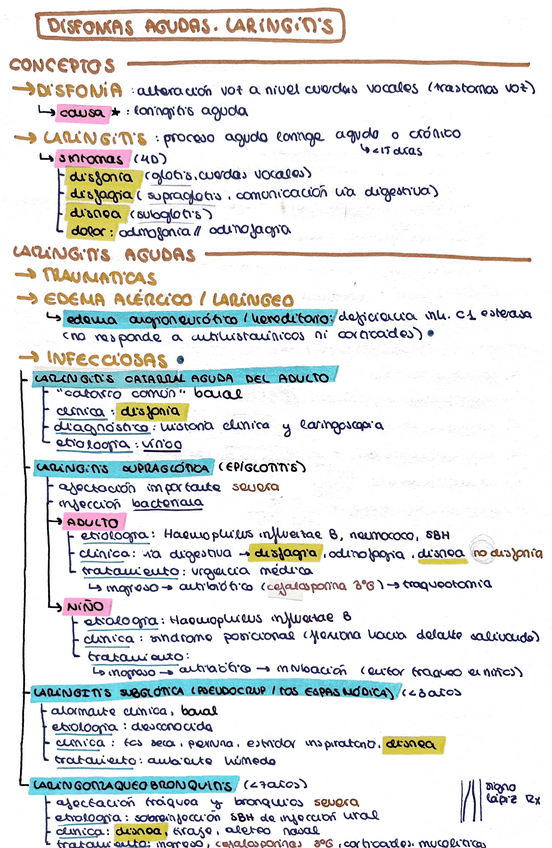 DISFONIAS AGUDAS. LARINGITIS
CONCEPTOS
→ DISFONÍA : alteración voz a nivel cuerdas vocales (trastornos voz)
↳ causa ★ : laringitis aguda
→ LARINGITIS : proceso agudo laringe agudo o crónico
↳ <15 días
↳ síntomas (4D)
disfonía (glotis, cuerdas vocales)
disfagia (supraglotis, comunicación vía digestiva)
disnea (subglotis)
dolor: odinofonía // odinofagia
LARINGITIS AGUDAS
→ TRAUMÁTICAS
→ EDEMA ALÉRGICO / LARÍNGEO
↳ edema angioneurótico / hereditario: deficiencia inh. C1 esterasa
(no responde a antihistamínicos ni corticoides)
→ INFECCIOSAS
LARINGITIS CATARRAL AGUDA DEL ADULTO
"catarro común" banal
clínica : disfonía
diagnóstico : historia clínica y laringoscopia
etiología : virico
LARINGITIS SUPRAGLÓTICA (EPIGLOTITIS)
afectación importante severa
infección bacteriana
→ ADULTO
etiología : Haemophilus influenzae B, neumococo, SBH
clínica : vía digestiva → disfagia, odinofagia, disnea no disfonía
tratamiento : urgencia médica
↳ ingreso → antibiótico (cefalosporina 3ºG) → traqueotomía
→ NIÑO
etiología : Haemophilus influenzae B
clínica : síndrome posicional (flexiona hacia delante salivando)
tratamiento :
↳ ingreso → antibiótico → intubación (evitar traqueo en niños)
LARINGITIS SUBGLÓTICA (PSEUDOCRUP / TOS ESPASMÓDICA) (<3 años
alarmante clínica, banal
etiología : desconocida
clínica : tos seca, perruna, estridor inspiratorio, disnea
tratamiento : ambiente húmedo
LARINGOTRAQUEOBRONQUITIS (<7 años)
signo
lápiz Rx
afectación tráquea y bronquios severa
etiología : sobreinfección SBH de infección viral
clínica : disnea, tiraje, aleteo nasal
tratamiento : ingreso, cefalosporinas 3ºG, corticoides, mucolíticos